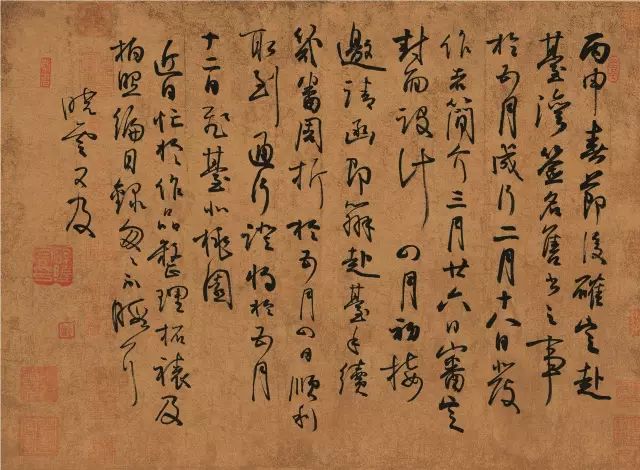 丙申春节後確定赴
臺灣簽名售书之事
於五月成行二月十八日發
作者簡介三月廿六日審定
封面設计四月初接
邀請函即辦赴臺手續
幾番周折於五月四日順利
取到通行證将於五月
十二日飛臺北桃園
近日忙於作品整理拓裱及
拍照编目録匆匆不暇
晓雲又及